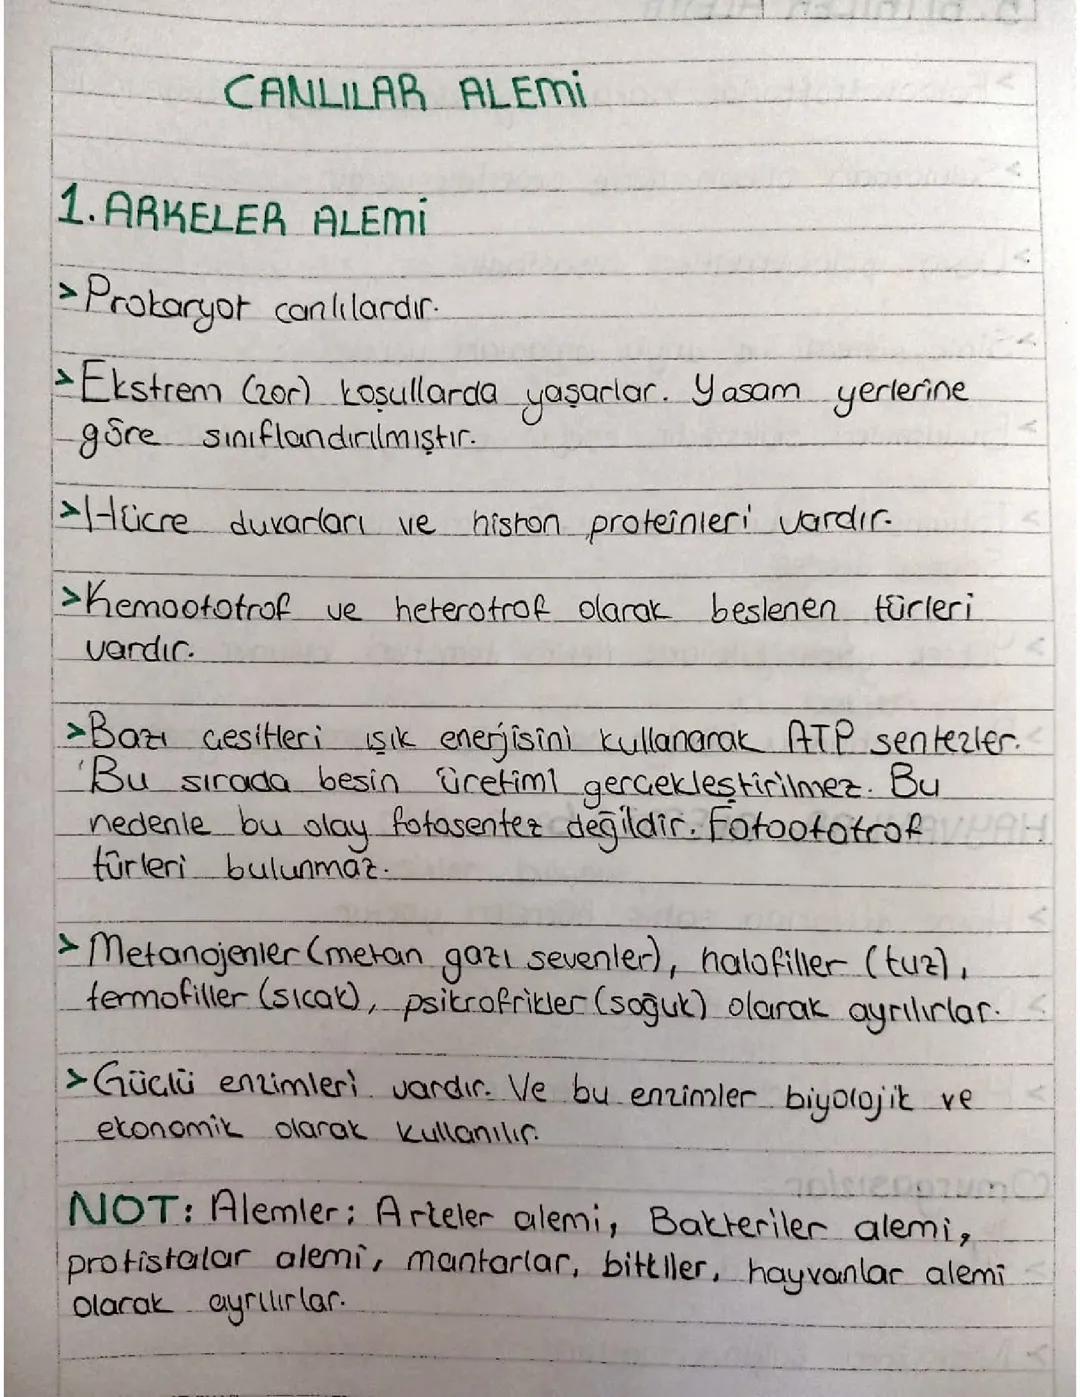 CANLILAR ALEMİ
1. ARKELER ALEMİ
> Prokaryot canlılardır.
> Ekstrem (zor) koşullarda yaşarlar. Yasam yerlerine
göre sınıflandırılmıştır.
> Hücre duvarları ve histon proteinleri vardır.
> Kemoototrof ve heterotrof olarak beslenen türleri
vardır.
> Bazı çesitleri ışık enerjisini kullanarak ATP sentezler.
Bu sırada besin üretimi gerçekleştirilmez. Bu
nedenle bu olay fotosentez değildir. Fotoototrof
türleri bulunmaz.
> Metanojenler (metan gazı sevenler), halofiller (tuz),
termofiller (sıcak), psikrofrikler (soğuk) olarak ayrılırlar.
> Güçlü enzimleri vardır. Ve bu enzimler biyolojik ve
ekonomik olarak kullanılır.
NOT: Alemler; Arkeler alemi, Bakteriler alemi,
protistalar alemi, mantarlar, bitkiler, hayvanlar alemi
olarak ayrılırlar.